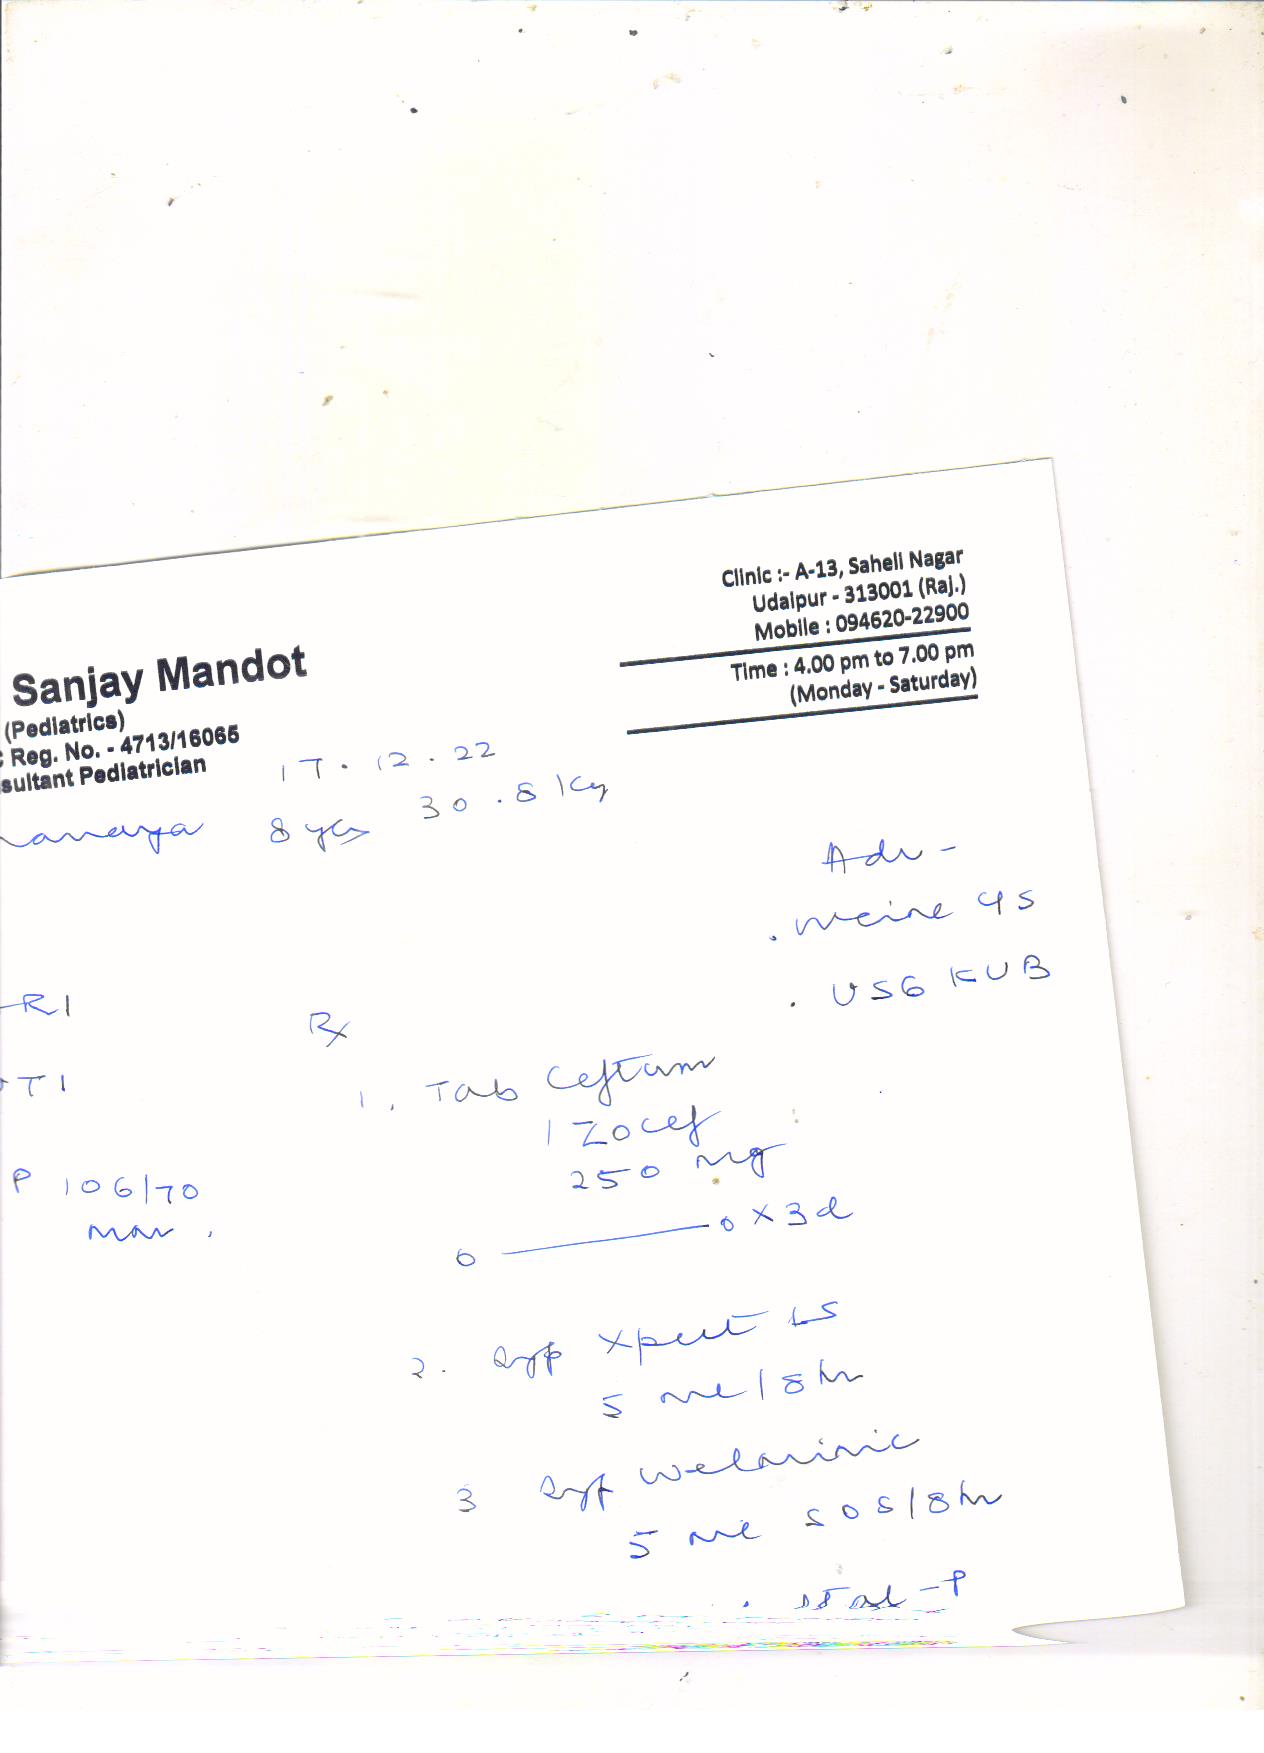 Clinic :- A-13, Saheli Nagar
Udaipur - 313001 (Raj.)
Mobile : 094620-22900
Time : 4.00 pm to 7.00 pm
(Monday - Saturday)
Sanjay Mandot
(Pediatrics)
Reg. No. - 4713/16065
sultant Pediatrician
17.12.22
8 yrs 30.8 Kg
Adv -
. Urine
. USG KUB
RI
Rx
TI
1. Tab Ceftum
/ Zocef
250 mg
P 106/70
0 ——— 0 x 3d
2. Syp Xpert LS
5 ml / 8 hr
3 Syp
5 ml SOS / 8 hr